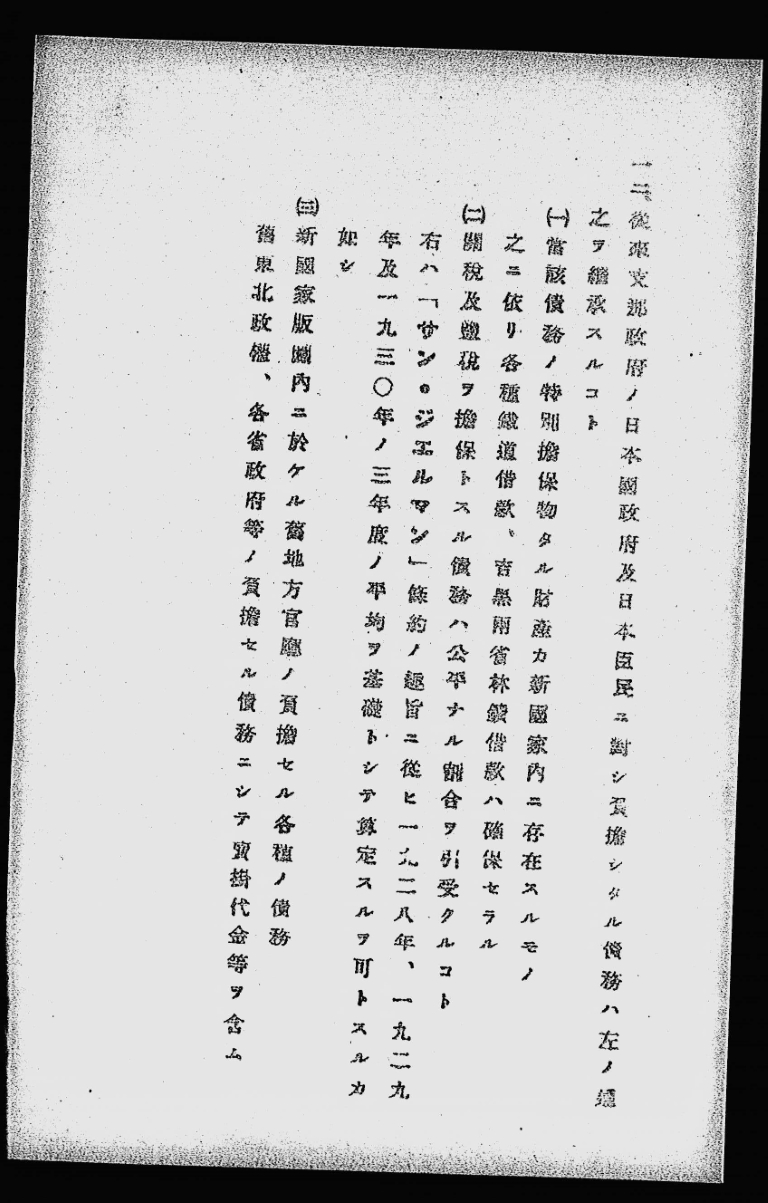 一二、從來支那政府ノ日本國政府及日本臣民ニ對シ負擔シタル債務ハ左ノ通
之ヲ繼承スルコト
(一)當該債務ノ特別擔保物タル財產カ新國家內ニ存在スルモノ
之ニ依リ各種鐵道借款、吉黑兩省林鑛借款ハ確保セラル
(二)關稅及鹽稅ヲ擔保トスル債務ハ公平ナル割合ヲ引受クルコト
右ハ「サン。ジエルマン」條約ノ趣旨ニ從ヒ一九二八年、一九二九
年及一九三〇年ノ三年度ノ平均ヲ基礎トシテ算定スルヲ可トスルカ
如シ
(三)新國家版圖內ニ於ケル舊地方官廳ノ負擔セル各種ノ債務
舊東北政權、各省政府等ノ負擔セル債務ニシテ買掛代金等ヲ含ム